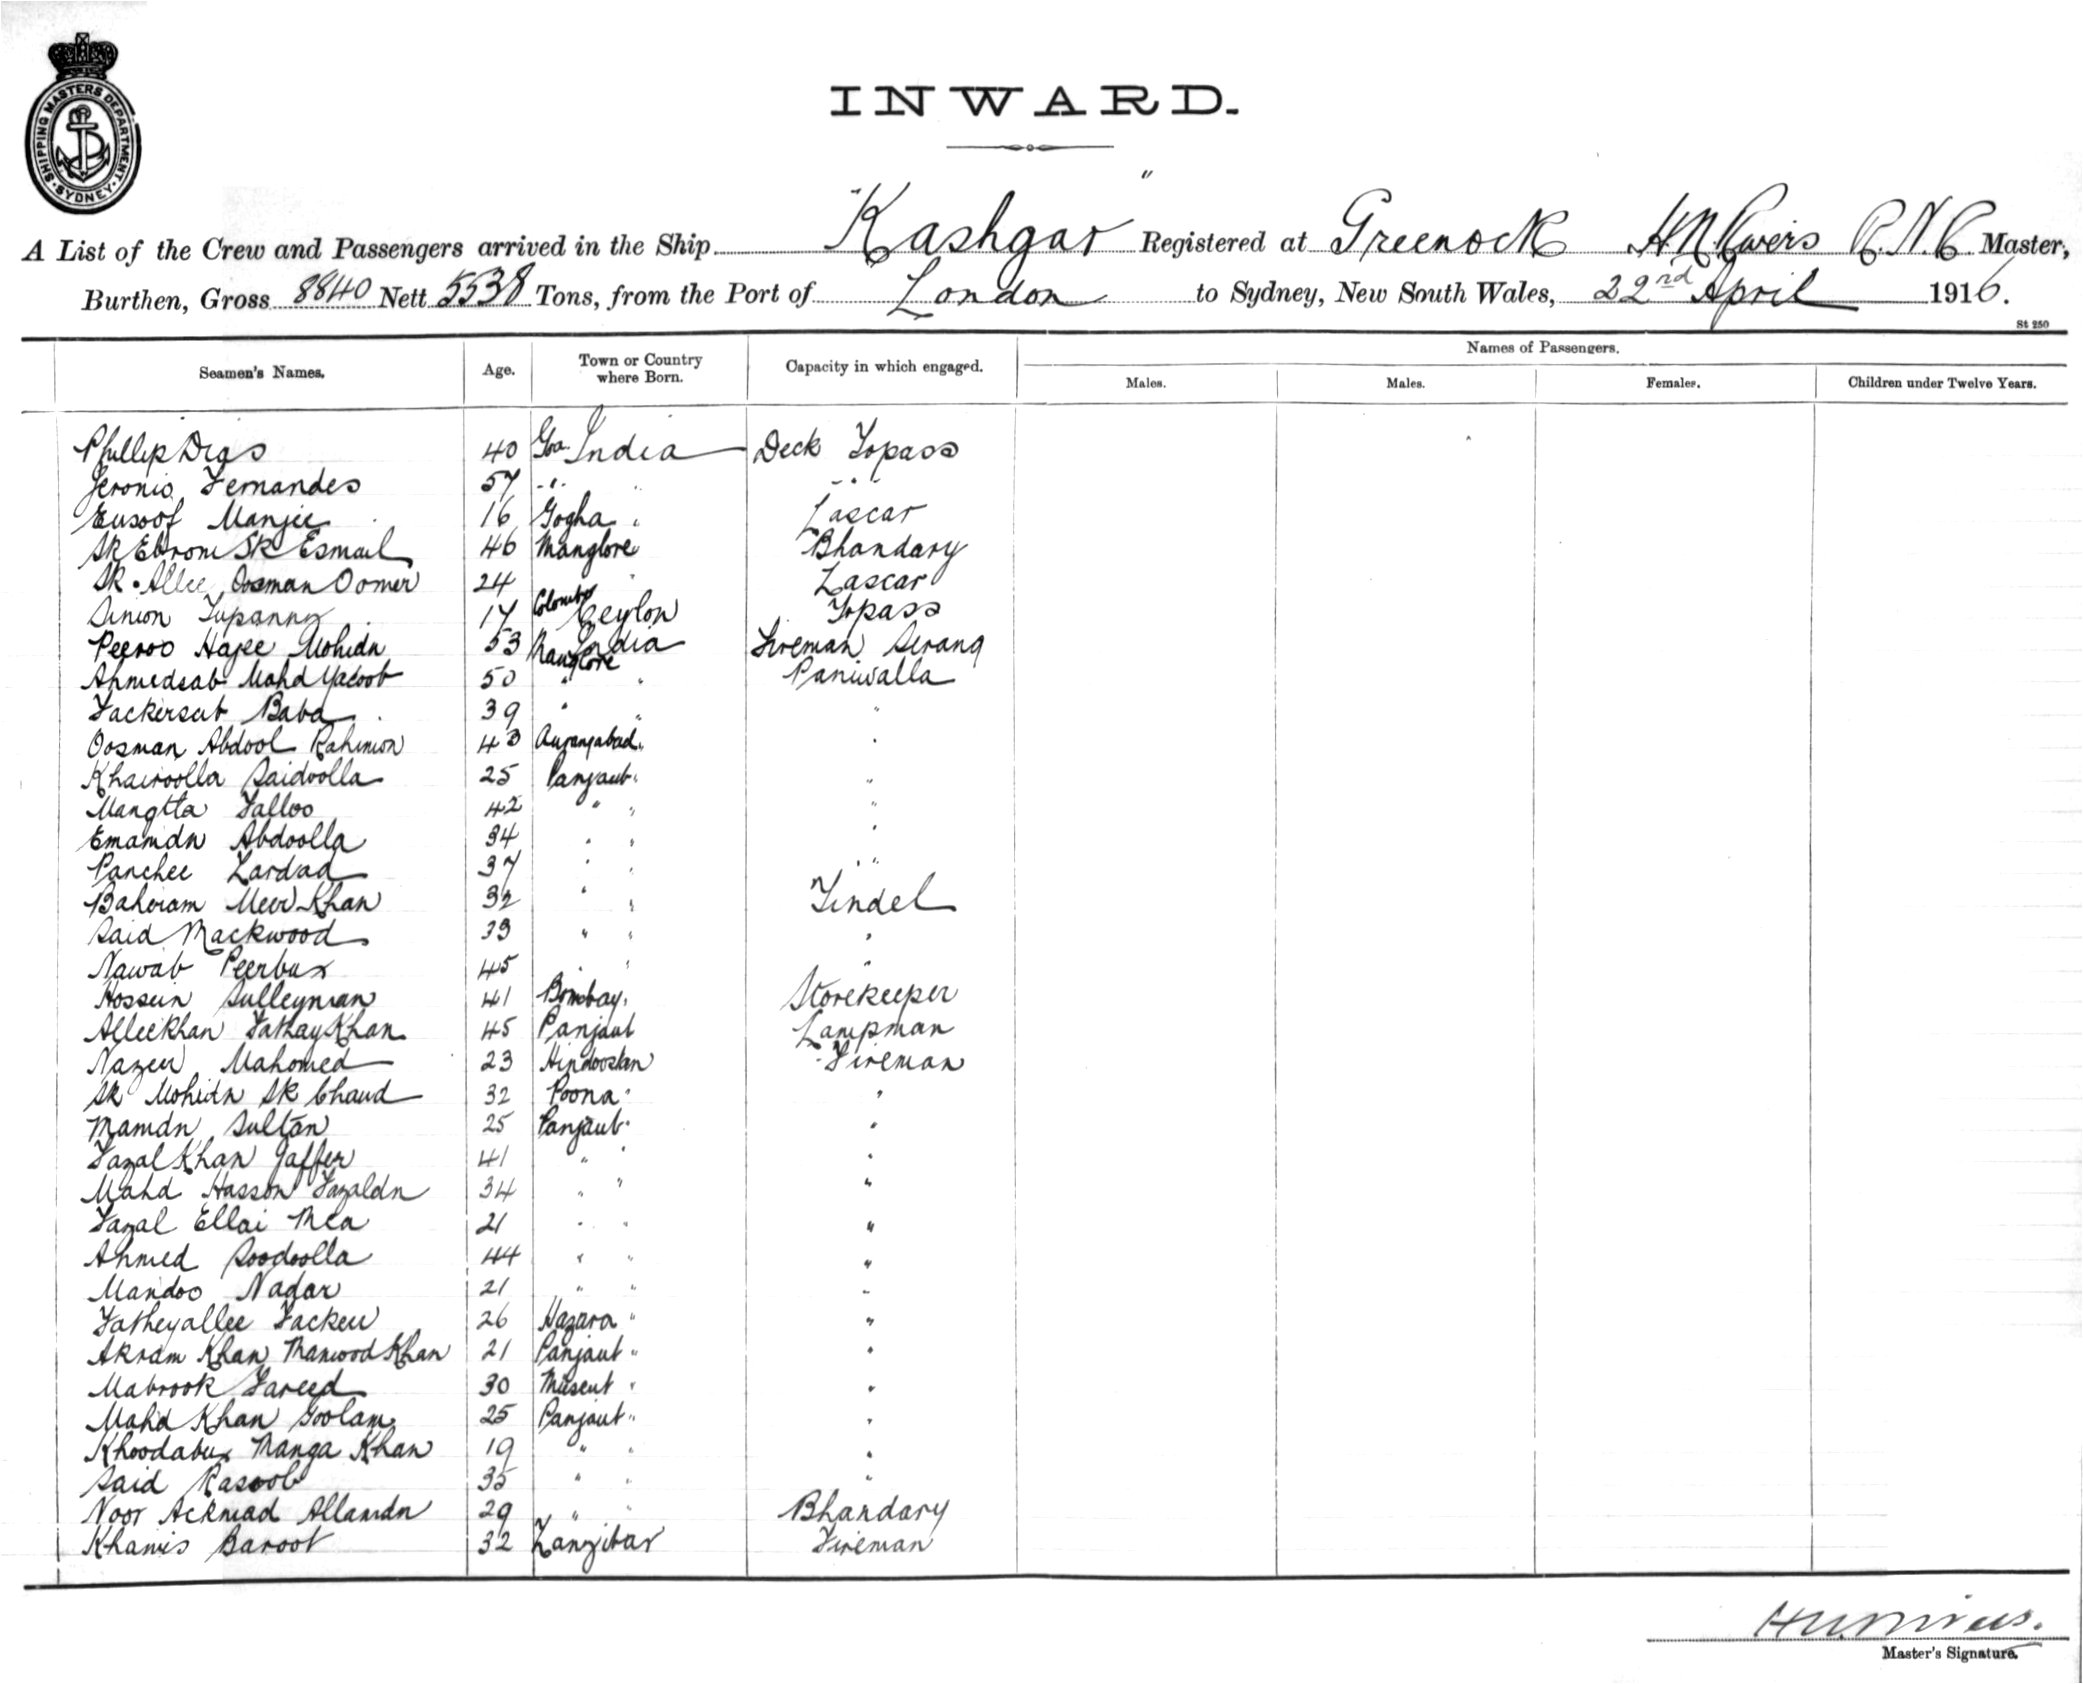 SHIPPING MASTERS DEPARTMENT · SYDNEY ·
INWARD.
A List of the Crew and Passengers arrived in the Ship Kashgar Registered at Greenock H.N. Rivers R.N.R. Master,
Burthen, Gross 8840 Nett 5538 Tons, from the Port of London to Sydney, New South Wales, 22nd April 1916.
St 250
Seamen's Names. Age. Town or Country where Born. Capacity in which engaged. Names of Passengers.
Males. Males. Females. Children under Twelve Years.
Phillip Dias 40 Goa India Deck Topass
Jeronio Fernandes 57 " " " "
Eusoof Manjee 16 Gogha " Lascar
Sk Ebrom Sk Esmail 46 Manglore Bhandary
Sk. Allee Oosman Oomer 24 " Lascar
Sinion 17 Colombo Ceylon Topass
Peeroo Hajee Mohidn 53 Manglore India Fireman Serang
Ahmedsab Mahd Yacoob 50 " " Paniwalla
Fackersab Baba 39 " " "
Oosman Abdool Rahimon 43 Aurangabad " "
Khairoolla Saidoolla 25 Panjaub " "
Mangtta Falloo 42 " " "
Emamdn Abdoolla 34 " " "
Panchee Zardad 37 " " "
Baheram Meer Khan 32 " " Tindel
Said Mackwood 33 " " "
Nawab Peerbux 45 " " "
Hossein Sulleyman 41 Bombay " Storekeeper
Alleekhan Fathay Khan 45 Panjaub Lampman
Nazeer Mahomed 23 Hindoostan Fireman
Sk Mohidn Sk Chand 32 Poona " "
Mamdn Sultan 25 Panjaub " "
Fazal Khan Jaffer 41 " " "
Mahd Hasson Fazaldn 34 " " "
Fazal Ellai Mea 21 " " "
Ahmed Soodoolla 44 " " "
Mandoo Nadar 21 " " "
Fatheyallee Fackeer 26 Hazara " "
Akram Khan Manwood Khan 21 Panjaub " "
Mabrook Fareed 30 Muscut " "
Mahd Khan Goolam 25 Panjaub " "
Khoodabux Manga Khan 19 " " "
Said Rasool 35 " " "
Noor Ackmad Allamdn 29 " " Bhandary
Khamis Baroot 32 Zanzibar Fireman
Master's Signature.